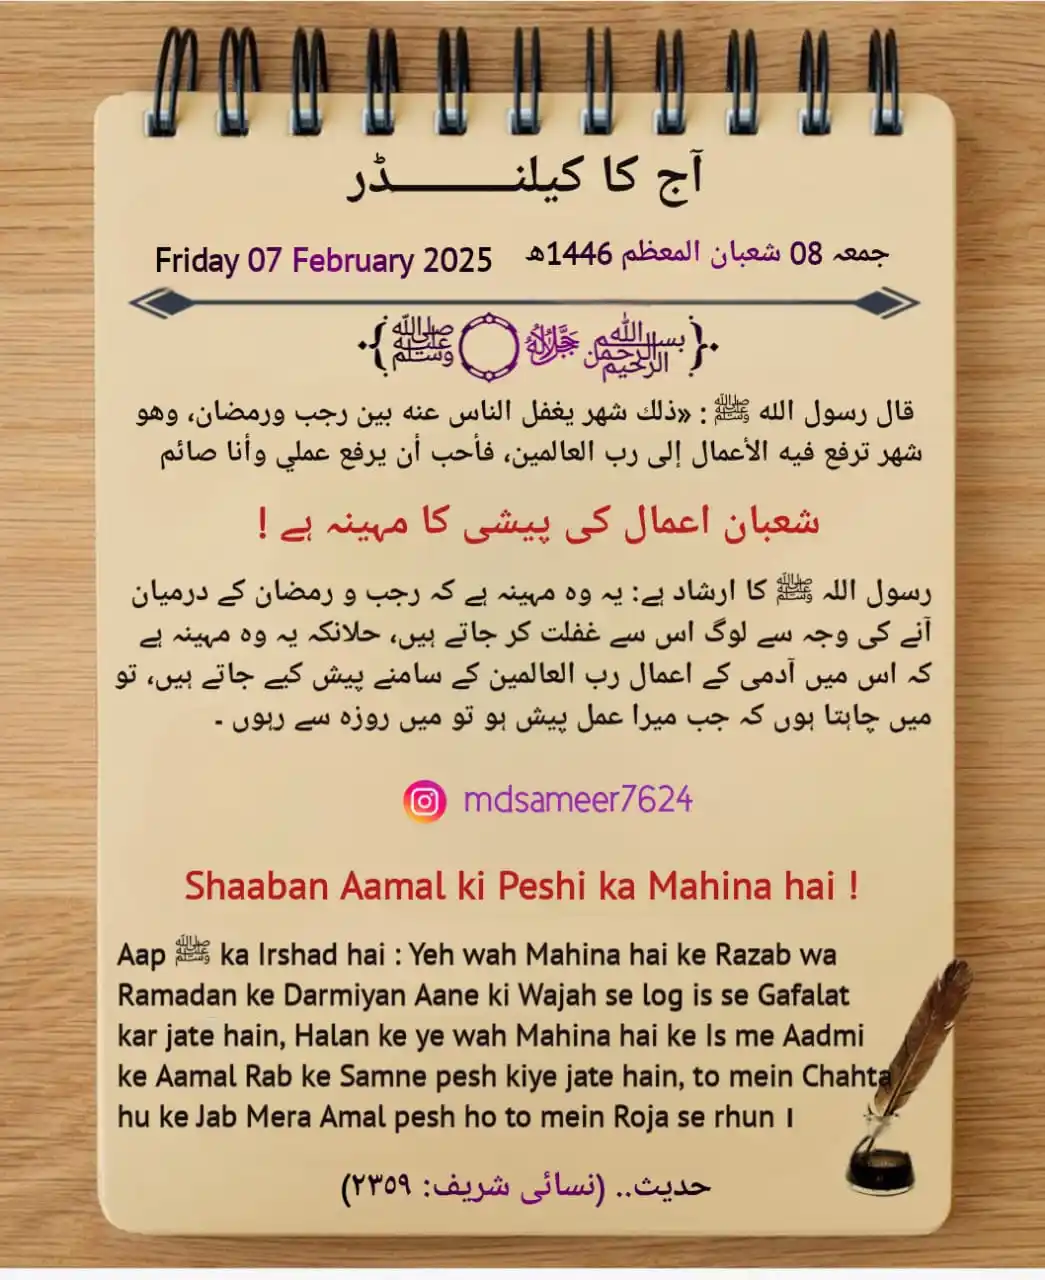 آج کا کیلنــــــــــڈر
جمعہ 08 شعبان المعظم 1446ھ
Friday 07 February 2025
﷽ ﷻ ۝ ﷺ
قال رسول الله ﷺ : «ذلك شهر يغفل الناس عنه بين رجب ورمضان، وهو
شهر ترفع فيه الأعمال إلى رب العالمين، فأحب أن يرفع عملي وأنا صائم
شعبان اعمال کی پیشی کا مہینہ ہے !
رسول اللہ ﷺ کا ارشاد ہے: یہ وہ مہینہ ہے کہ رجب و رمضان کے درمیان
آنے کی وجہ سے لوگ اس سے غفلت کر جاتے ہیں، حلانکہ یہ وہ مہینہ ہے
کہ اس میں آدمی کے اعمال رب العالمین کے سامنے پیش کیے جاتے ہیں، تو
میں چاہتا ہوں کہ جب میرا عمل پیش ہو تو میں روزہ سے رہوں ۔
mdsameer7624
Shaaban Aamal ki Peshi ka Mahina hai !
Aap ﷺ ka Irshad hai : Yeh wah Mahina hai ke Razab wa
Ramadan ke Darmiyan Aane ki Wajah se log is se Gafalat
kar jate hain, Halan ke ye wah Mahina hai ke Is me Aadmi
ke Aamal Rab ke Samne pesh kiye jate hain, to mein Chahta
hu ke Jab Mera Amal pesh ho to mein Roja se rhun ।
حدیث.. (نسائی شریف: ٢٣٥٩)